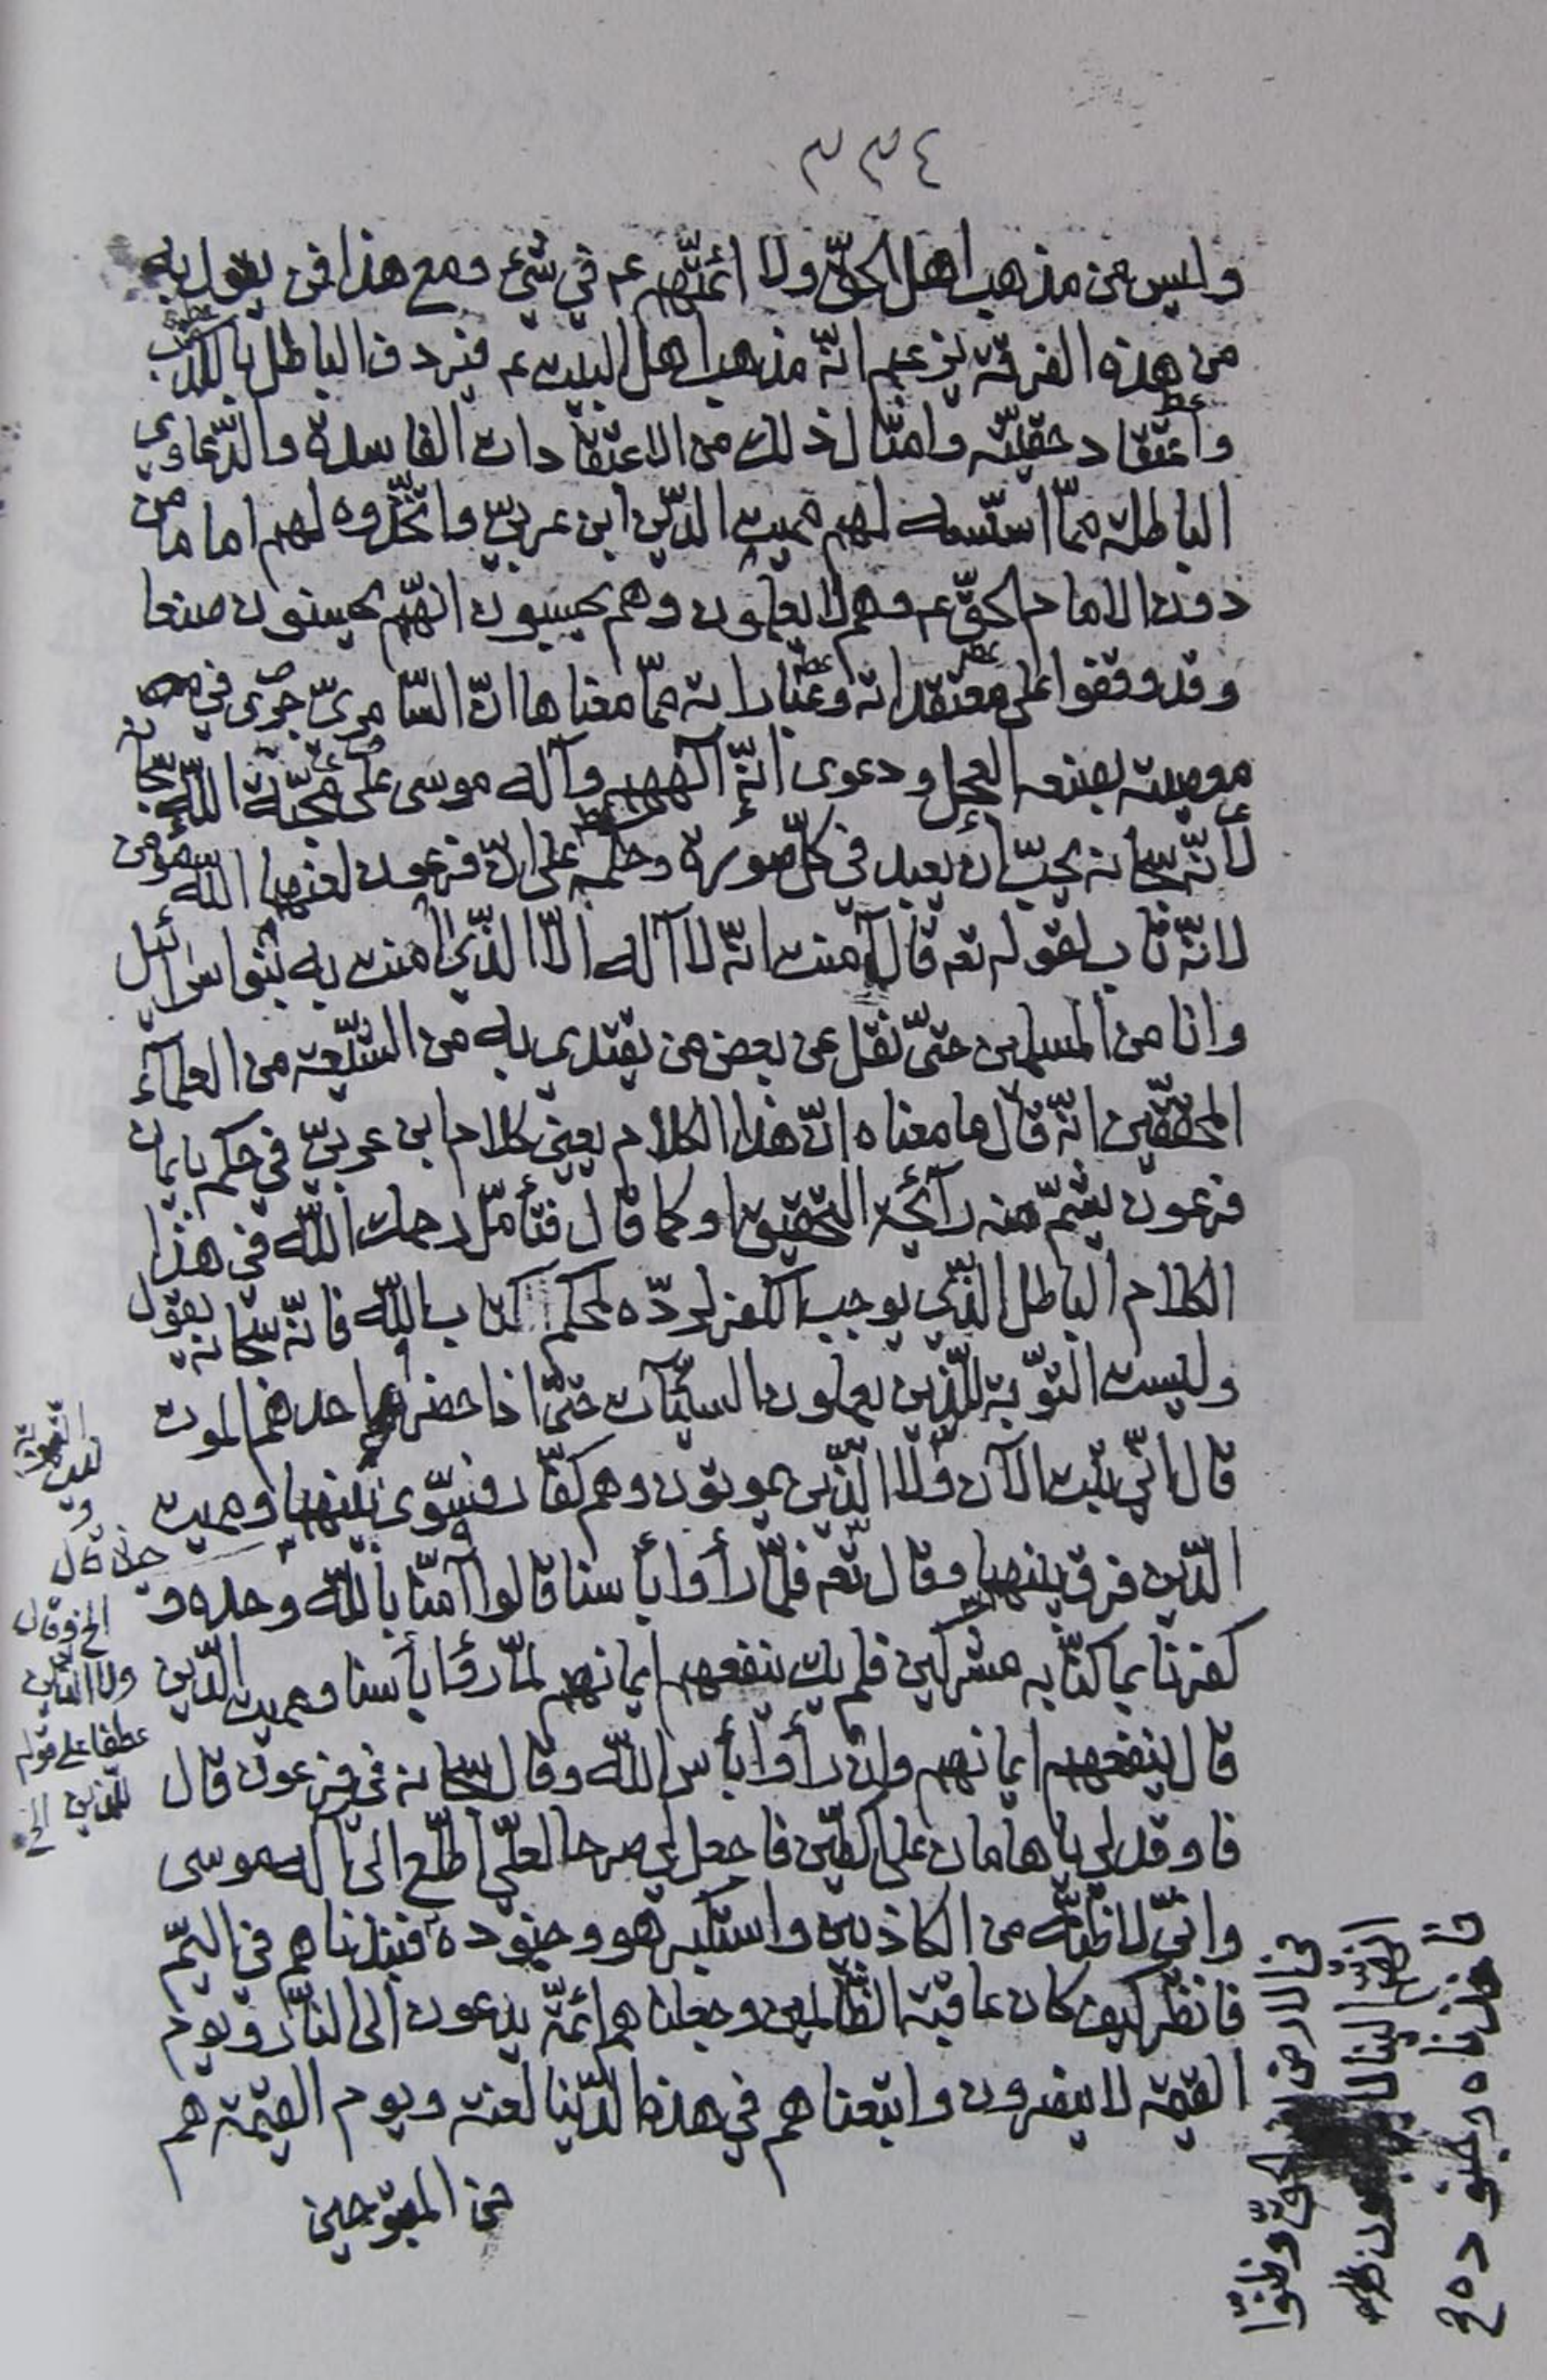 ٣٣٤
وليس من مذهب اهل الحقّ ولا ائمّتهم عم في شيء ومع هذا فمن يقول به
من هذه الفرقة يزعم انّه مذهب اهل البيت عم فيردف الباطل بالكذب
واعتقاد حقيّته وامثال ذلك من الاعتقادات الفاسدة والدّعاوى
الباطلة ممّا اسّسه لهم مميت الدّين ابن عربيّ واتّخذوه لهم اماما من
دون الامام الحقّ عم وهم لا يعلمون وهم يحسبون انّهم يحسنون صنعا
وقد وقفوا على معتقداته وعباراته ممّا معناها انّ السّامريّ جرى في
بصنعه العجل ودعوى انّه الههم واله موسى على محبّة اللّه سبحانه
لأنّه سبحانه يحبّ ان يعبد في كلّ صورة وحكمه على انّ فرعون لعنهما الله مؤمن
لانّه تاب لقوله تعه قال آمنت انّه لا آله الّا الّذي امنت به بنوا اسرائيل
وانا من المسلمين حتّى نقل عن بعض من يقتدى به من الشّيعة من العلمآء
المحقّقين انّه قال ما معناه انّ هذا الكلام يعني كلام ابن عربيّ في حكم بايمان
فرعون يشمّ منه رآئحة التحقيق او كما قال فتأمّل رحمك اللّه في هذا
الكلام الباطل الّذي يوجب الكفر لردّه لمحكم كتاب اللّه فانّه سبحانه يقول
وليست التوّبة للّذين يعملون السيّئآت حتّى اذا حضر احدهم الموت
قال انّي تبت الآن ولا الّذين يموتون وهم كفّار فسوّى بينهما ومميت
الدّين فرق بينهما وقال تعه فلمّا رأوا بأسنا قالوا آمنّا باللّه وحده و
كفرنا بما كنّا به مشركين فلم يك ينفعهم ايمانهم لمّا رأوا بأسنا ومميت الدّين
قال ينفعهم ايمانهم وان رأوا بأس اللّه وقال سبحانه في فرعون قال
فاوقد لي يا هامان على الطّين فاجعل لي صرحا لعلّي اطّلع الى آله موسى
وانّي لاظنّه من الكاذبين واستكبر هو وجنوده فنبذناهم في اليمّ
فانظر كيف كان عاقبة الظّالمين وجعلناهم ائمّة يدعون الى النّار ويوم
القيمة لا ينصرون واتبعناهم في هذه الدّنيا لعنة ويوم القيمة هم
من المقبوحين
حيث قال
الخ وقال
ولا الّذين
عطفا على قوله
للّذين الخ
في الارض بغير الحقّ وظنّوا
انّهم الينا لا يرجعون
فاخذناه وجنوده